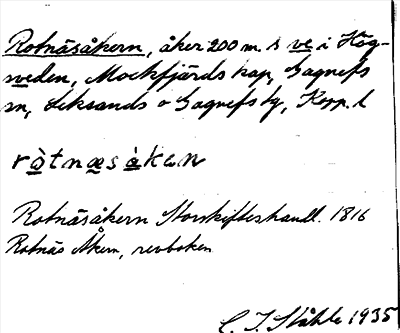 Rotnäsåkern, åker 200 m. s ve i Hög-
sveden, Mockfjärds kap, Gagnefs
sn, Leksands o Gagnefs tg, Kopp. l
ròtnæsàkan
Rotnäsåkern Storskifteshandl. 1816
Rotnäs Åkern, revboken
C. I. Ståhle 1935